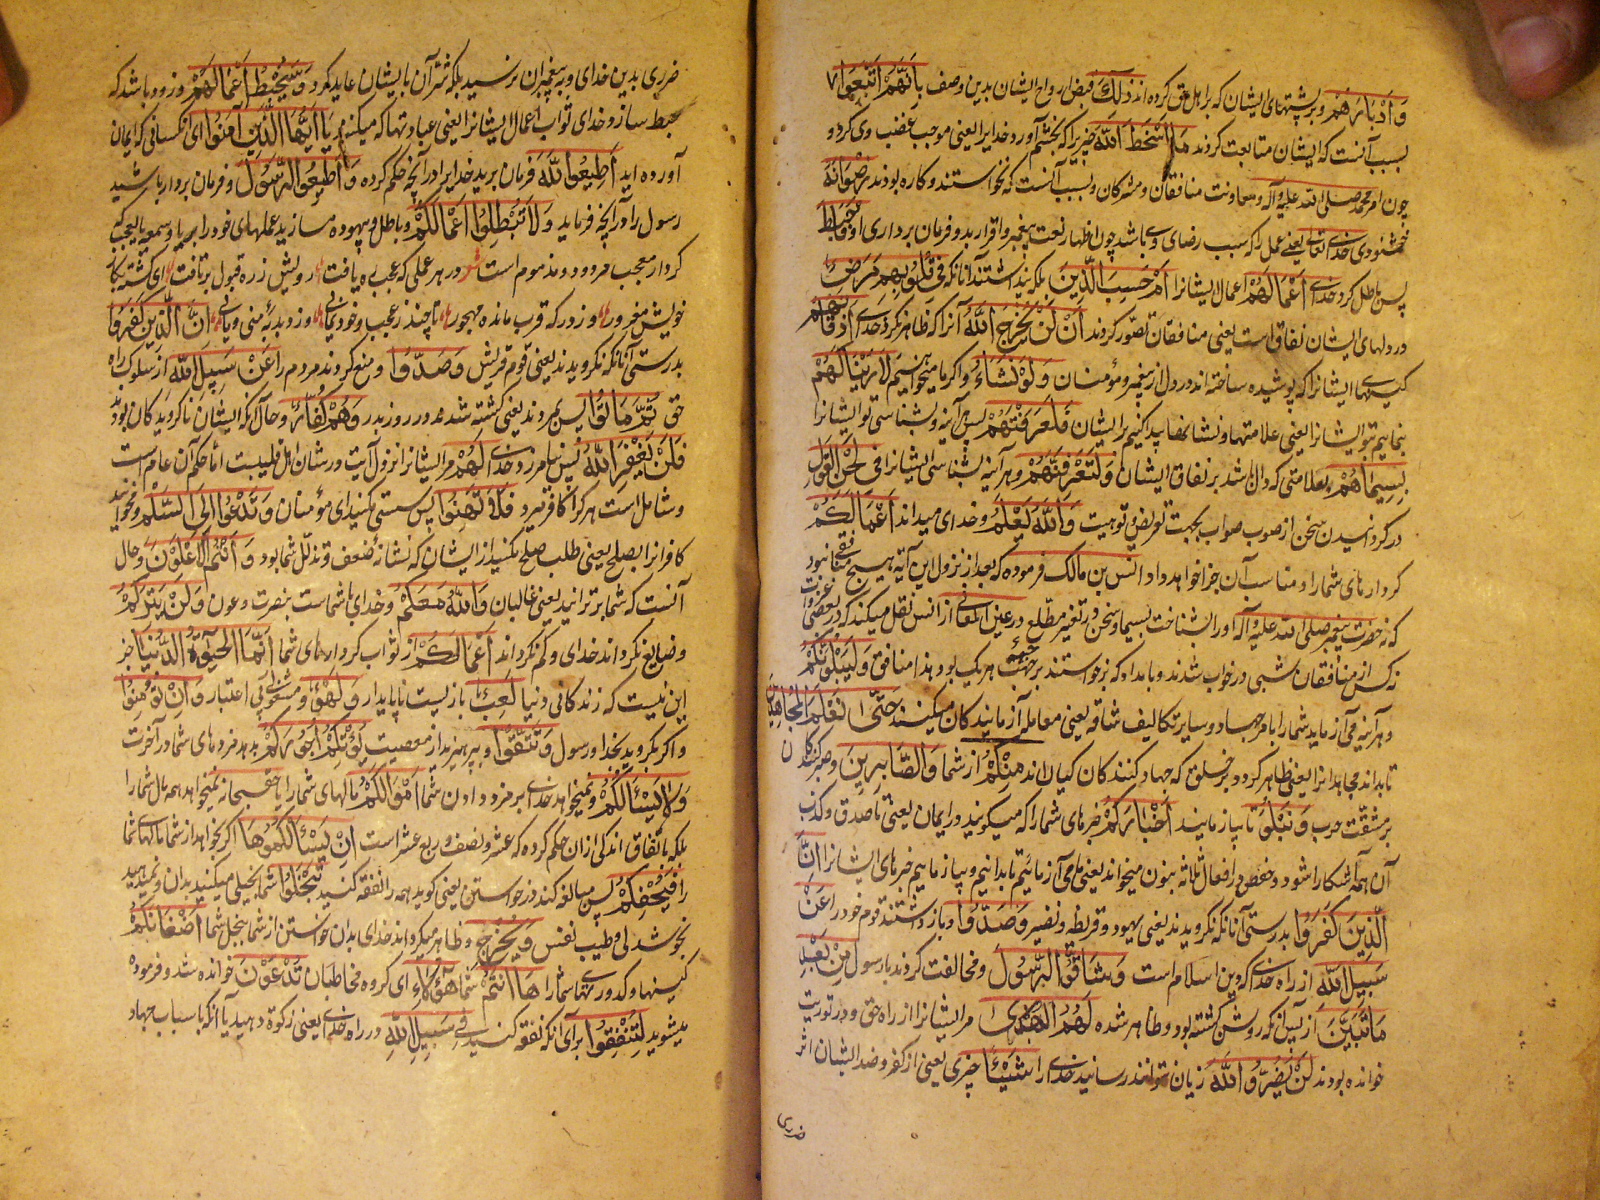 وَأَدْبَارَهُمْ و بر پشتهای ایشان که بر اهل حق کرده اند ذَلِكَ قبض رواح ایشان بدین وصف بِأَنَّهُمُ اتَّبَعُوا
بسبب آنست که ایشان متابعت کردند مَا أَسْخَطَ اللهَ چیزیرا که بخشم آورد خدایرا یعنی موجب غضب وی کردد
چون امر محمد صلی الله علیه و آله و معاونت منافقان و مشرکان و بسبب آنست که نخواستند و کاره بودند رِضْوَانَهُ
خشنودی خدای تعالی یعنی عمل را که سبب رضای وی باشد چون اظهار نعت پیغمبر و اقرار بدو فرمان برداری او فَأَحْبَطَ
پس باطل کرد خدای أَعْمَالَهُمْ اعمال ایشانرا أَمْ حَسِبَ الَّذِينَ بلکه پنداشتند آنانکه فِي قُلُوبِهِمْ مَرَضٌ
در دلهای ایشان نفاق است یعنی منافقان تصور کردند أَنْ لَنْ يُخْرِجَ اللهُ آنرا که ظاهر نکرد خدای أَضْغَانَهُمْ
کینهای ایشانرا که پوشیده ساخته اند در دل از پیغمبر و مؤمنان وَلَوْ نَشَاءُ و اکر ما میخواهیم لَأَرَيْنَاكَهُمْ
بنماییم بتو ایشانرا یعنی علامتها و نشانها پیدا کنیم بر ایشان فَلَعَرَفْتَهُمْ پس هر آینه بشناسی تو ایشانرا
بِسِيمَاهُمْ بعلامتی که دال باشد بر نفاق ایشان وَلَتَعْرِفَنَّهُمْ و هر آینه بشناسی ایشانرا فِي لَحْنِ الْقَوْلِ
در کردانیدن سخن از صوب صواب بجهت تعریض و توریت وَاللهُ يَعْلَمُ و خدای میداند أَعْمَالَكُمْ
کردارهای شمارا و مناسب آن جزا خواهد داد انس بن مالک فرموده که بعد از نزول این آیة هیچ منافقی نبود
که نه حضرت پیغمبر صلی الله علیه و آله او را شناخت بسیما و سخن در تغیر مطلع در عین المعانی از انس نقل میکند که در بعضی غزوات
نه کس از منافقان شبی در خواب شدند و بامداد که برخواستند بر جبهه هر یک بود هذا منافق وَلَنَبْلُوَنَّكُمْ
و هر آینه می آزماید شمارا بامر جهاد و سایر تکالیف شاقه یعنی معامله آزمایندکان میکنند حَتَّى نَعْلَمَ الْمُجَاهِدِينَ
تا بداند مجاهدانرا یعنی ظاهر کردد بر خلق که جهاد کنندکان کیان اند مِنْكُمْ از شما وَالصَّابِرِينَ و صبر کنندکان
بر مشقت حرب وَنَبْلُوَ تا بیازمایند أَخْبَارَكُمْ خبرهای شمارا که میکویند در ایمان یعنی تا صدق و کذب
آن همه آشکارا شود و حفص در افعال ثلاثه بنون میخواند یعنی ما می آزمائیم تا بدانیم و بیازماییم خبرهای ایشانرا إِنَّ
الَّذِينَ كَفَرُوا بدرستی آنانکه نکرویدند یعنی یهود و قریظه و نضیر وَصَدُّوا و بازداشتند قوم خود را عَنْ
سَبِيلِ اللهِ از راه خدای که دین اسلام است وَشَاقُّوا الرَّسُولَ و مخالفت کردند با رسول مِنْ بَعْدِ
مَا تَبَيَّنَ از پس آنکه روشن کشته بود و ظاهر شده لَهُمُ الْهُدَى مر ایشانرا از راه حق و در توریت
خوانده بودند لَنْ يَضُرُّوا اللهَ زیان نتوانند رسانید خدای را شَيْئًا چیزی یعنی از کفر و صد ایشان اثر
ضرری
ضرری بدین خدای و پیغمبران نرسید بلکه شر آن بایشان عاید کردد وَسَيُحْبِطُ أَعْمَالَهُمْ و زود باشد که
حبط سازد خدای ثواب اعمال ایشانرا یعنی عبادتها که میکنند يَا أَيُّهَا الَّذِينَ آمَنُوا ای کسانی که ایمان
آورده اید أَطِيعُوا اللهَ فرمان برید خدایرا در آنچه حکم کرده وَأَطِيعُوا الرَّسُولَ و فرمان بردار باشید
رسول را در آنچه فرماید وَلَا تُبْطِلُوا أَعْمَالَكُمْ و باطل و بیهوده مسازید عملهای خود را بریا و سمعه یا بعجب که
کردار معجب مردود و مذموم است در هر عملی که عجب ره یافت رویش ز ره قبول برتافت ای کشته بکار
خویش مغرور وز در که قرب مانده مهجور تا چند ز عجب و خودنمایی وز دبدبه منی و مایی إِنَّ الَّذِينَ كَفَرُوا
بدرستی آنانکه نکرویدند یعنی قوم قریش وَصَدُّوا و منع کردند مردم را عَنْ سَبِيلِ اللهِ از سلوک راه
حق ثُمَّ مَاتُوا پس مردند یعنی کشته شدند در روز بدر وَهُمْ كُفَّارٌ و حال آنکه ایشان ناکرویدکان بودند
فَلَنْ يَغْفِرَ اللهُ پس نیامرزد خدای لَهُمْ مر ایشانرا نزول آیت در شان اهل قلیبست اما حکم آن عام است
و شامل است هر کرا کافر میرد فَلَا تَهِنُوا پس سستی مکنید ای مؤمنان وَتَدْعُوا إِلَى السَّلْمِ و مخوانید
کافرانرا بصلح یعنی طلب صلح مکنید از ایشان که نشانه ضعف و تذلل شما بود وَأَنْتُمُ الْأَعْلَوْنَ و حال
آنست که شما برترانید یعنی غالبان وَاللهُ مَعَكُمْ و خدای با شماست بنصرت و عون وَلَنْ يَتِرَكُمْ
و ضایع نکرداند خدای و کم نکرداند أَعْمَالَكُمْ از ثواب کردارهای شما إِنَّمَا الْحَيَوةُ الدُّنْيَا جز
این نیست که زندکانی دنیا لَعِبٌ بازیست ناپایدار وَلَهْوٌ و مشغولی بی اعتبار وَإِنْ تُؤْمِنُوا
و اکر بکروید بخدا و رسول وَتَتَّقُوا و بپرهیزید از معصیت يُؤْتِكُمْ أُجُورَكُمْ بدهد مزدهای شما در آخرت
وَلَا يَسْأَلْكُمْ و نمیخواهد خدای بر مزد دادن شما أَمْوَالَكُمْ مالهای شمارا یا حق سبحانه نمیخواهد همه مال شمارا
بلکه باتفاق اندکی از آن حکم کرده که عشر و نصف و ربع عشر است إِنْ يَسْأَلْكُمُوهَا اکر بخواهد از شما مالهای شما
را فَيُحْفِكُمْ پس مبالغه کند در خواستن یعنی کوید همه را نفقه کنید تَبْخَلُوا شما بخیلی میکنید بدان و نمیدهید
بخوشدلی و طیب نفس وَيُخْرِجْ و ظاهر میکرداند خدای بدان خواستن از شما بخل شما أَضْغَانَكُمْ
کینها و کدورتهای شمارا هَا أَنْتُمْ شما هَؤُلَاءِ ای کروه مخاطبان تُدْعَوْنَ خوانده شده و فرموده
میشوید لِتُنْفِقُوا برای آنکه نفقه کنید فِي سَبِيلِ اللهِ در راه خدای یعنی زکوة دهید یا آنکه باسباب جهاد